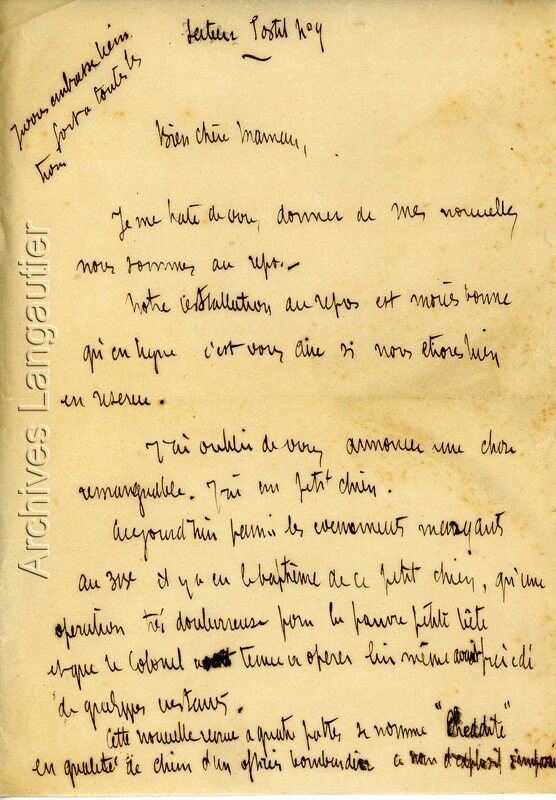 Secteur Postal No 9
Je vous embrasse bien
fort a toutes les
trois
Bien chère Maman,
Je me hate de vous donner de mes nouvelles
nous sommes au repos.
Notre installation au repos est moins bonne
qu'en ligne c'est vous dire si nous étions bien
en reserve.
J'ai oublié de vous annoncer une chose
remarquable. J'ai un petit chien.
Aujourd'hui parmi les evenements marquants
au 31e il y a eu le baptême de ce petit chien, qu'une
operation très douloureuse pour la pauvre petite bête
et que le Colonel tenu a operer lui même avait précédé
de quelques instants.
Cette nouvelle recrue a quatre pattes se nomme "Cheddite"
en qualité de chien d'un officier bombardier ce nom d'explosif
Archives Langautier